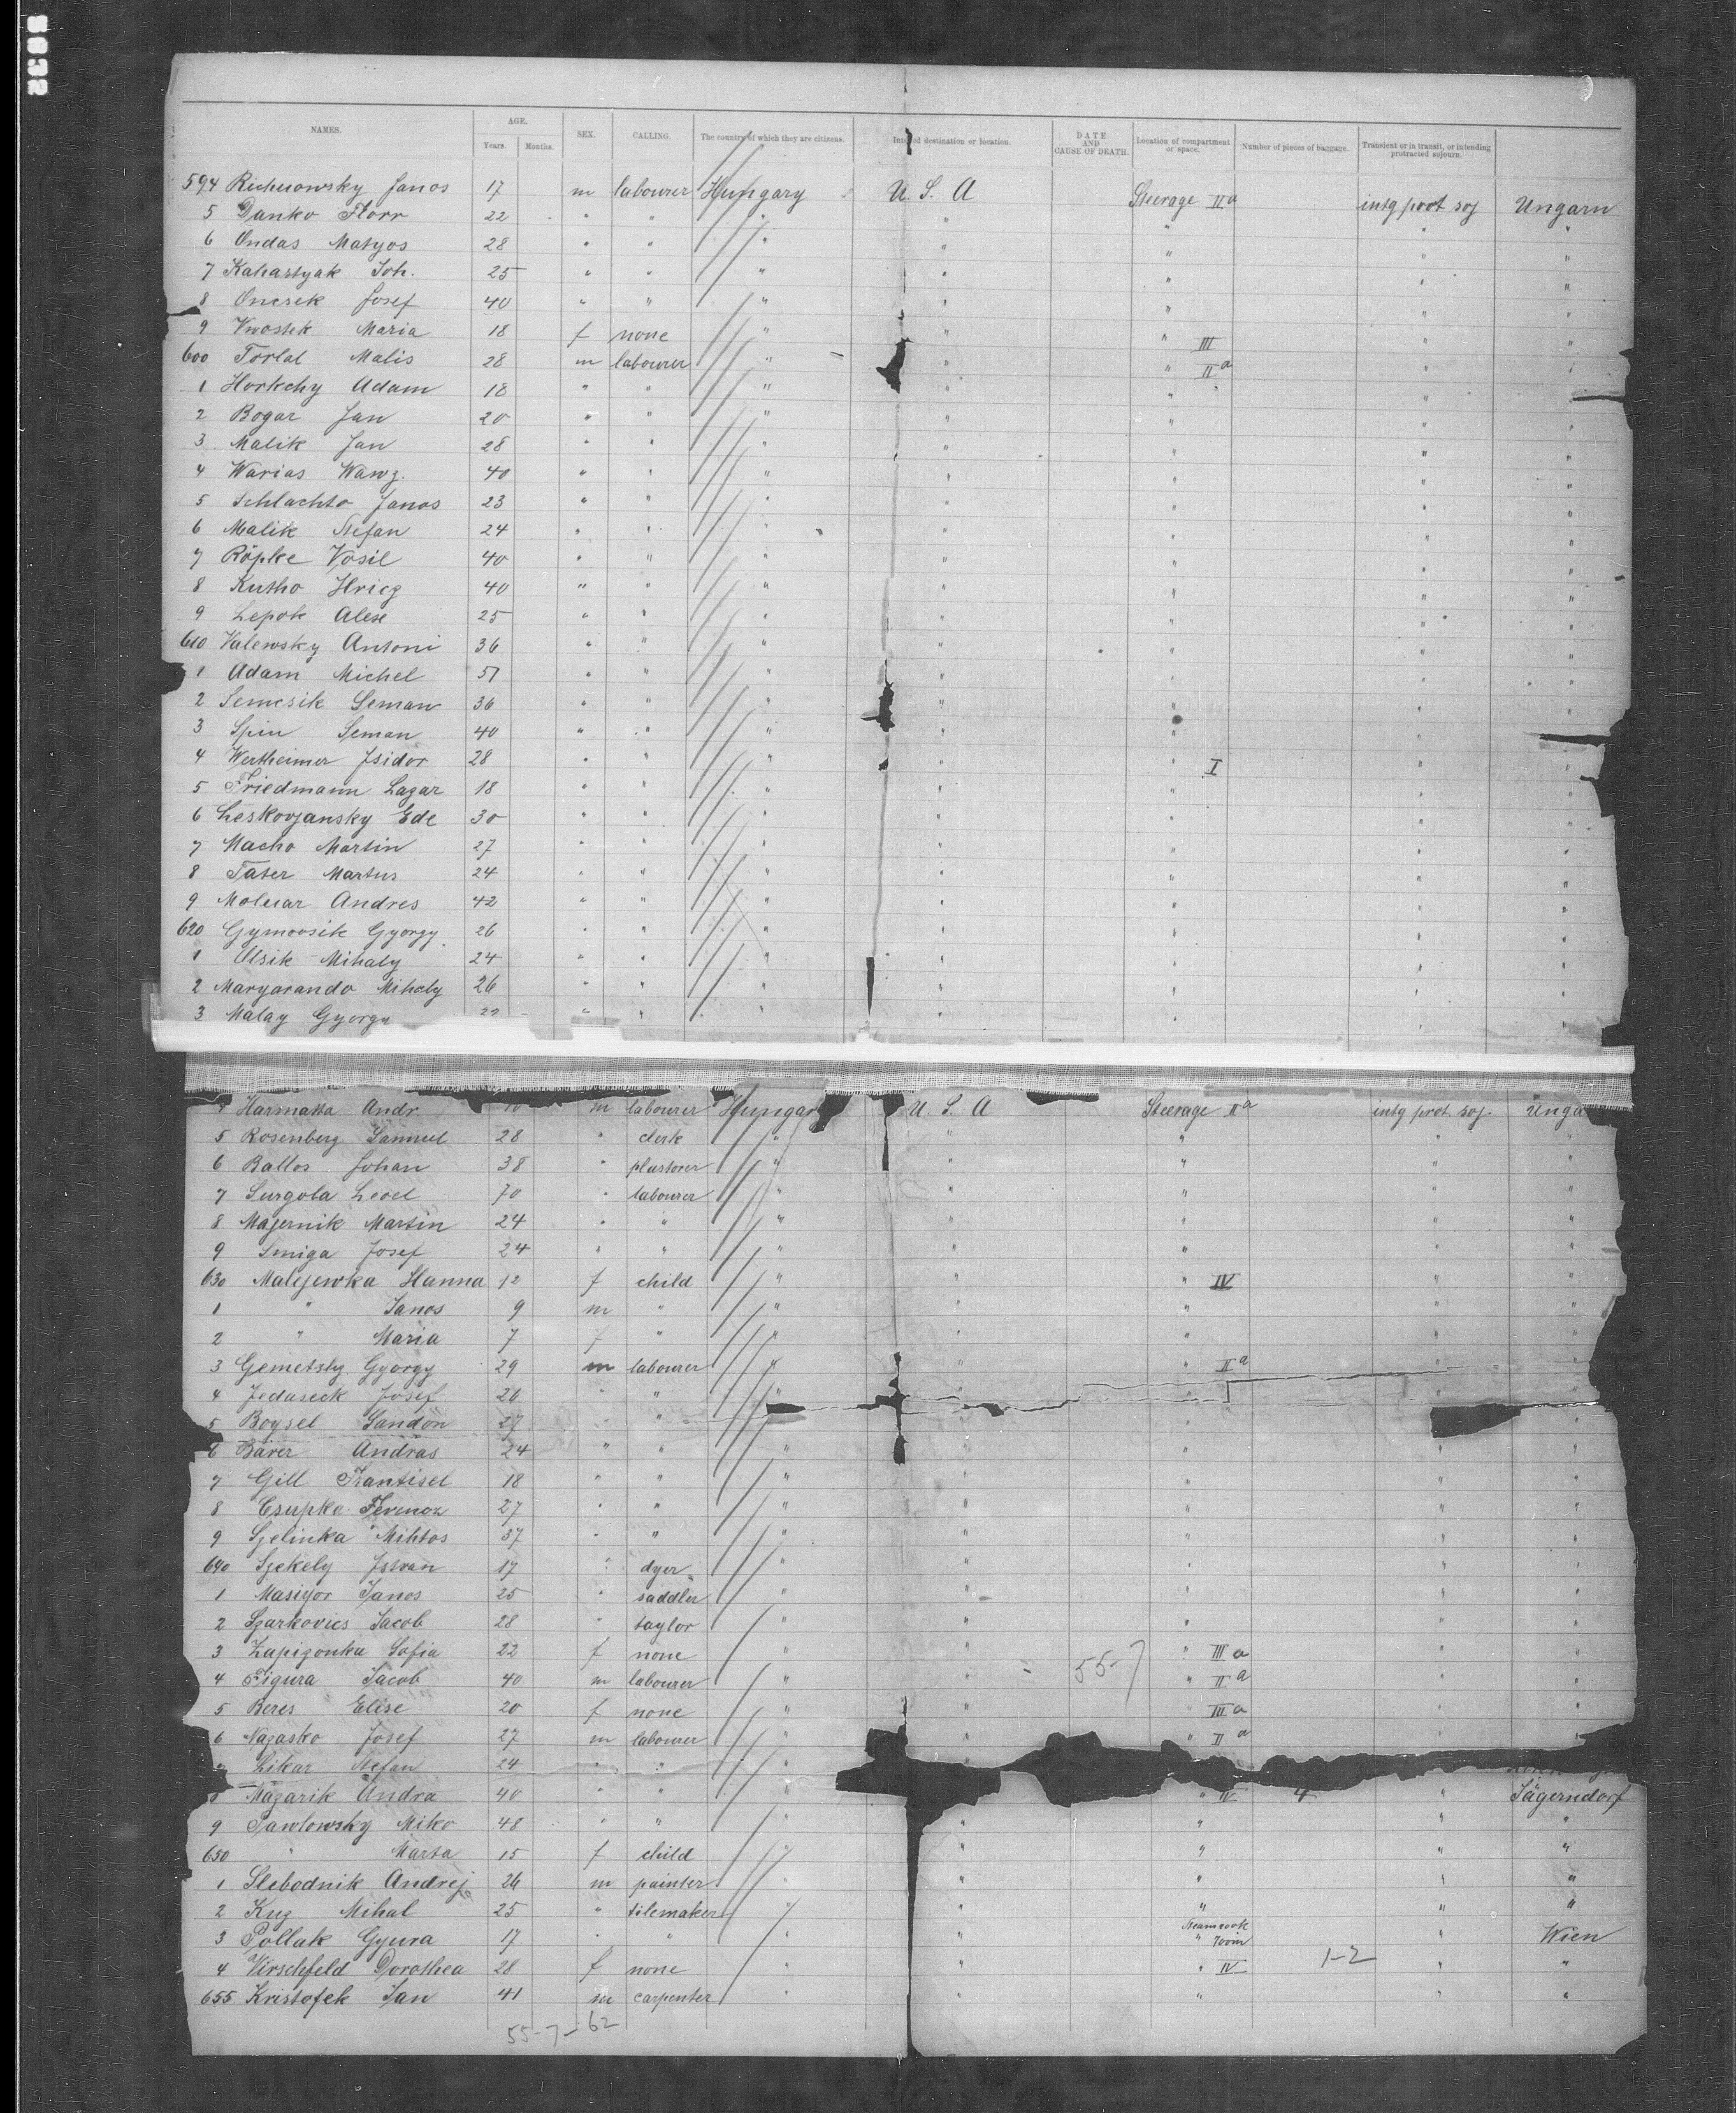 NAMES. AGE. Years. Months. SEX. CALLING. The country of which they are citizens. Intended destination or location. DATE AND CAUSE OF DEATH. Location of compartment or space. Number of pieces of baggage. Transient or in transit, or intending protracted sojourn.
594 Richnowsky Janos 17 m labourer Hungary U. S. A Steerage II a intg prot soj Ungarn
5 Danko 22 " " " " " " "
6 Ondas Matyos 28 " " " " " " "
7 Kahastyak Joh. 25 " " " " " " "
8 Oncsek Josef 40 " " " " " " "
9 Vwostek Maria 18 f none " " " III " "
600 Torlal Malis 28 m labourer " " " II a " "
1 Horkchy Adam 18 " " " " " " " "
2 Bogar Jan 20 " " " " " " "
3 Malik Jan 28 " " " " " " "
4 Warias Wawz. 40 " " " " " " "
5 Schlachto Janos 23 " " " " " " "
6 Malik Stefan 24 " " " " " " "
7 Röpke Vasil 40 " " " " " " "
8 Kutho Hricz 40 " " " " " " "
9 Lepok Alexe 25 " " " " " " "
610 Valewsky Antoni 36 " " " " " " "
1 Adam Michel 51 " " " " " " "
2 Semcsik Seman 36 " " " " " " "
3 Spin Seman 40 " " " " " " "
4 Wertheimer Isidor 28 " " " " " I " "
5 Friedmann Lazar 18 " " " " " " "
6 Leskovjansky Ede 30 " " " " " " "
7 Macho Martin 27 " " " " " " "
8 Tater Martus 24 " " " " " " "
9 Molnar Andres 42 " " " " " " "
620 Gymoosik Gyorgy 26 " " " " " " "
1 Olsik Mihaly 24 " " " " " " "
2 Maryarando Mihaly 26 " " " " " " "
3 Malay Gyorgy 22 " " " " " " "
4 Harmatta Andr m labourer Hungary U. S. A Steerage II a intg prot soj. Unga
5 Rosenberg Samuel 28 " clerk " " " " "
6 Ballos Johan 38 " plasterer " " " " "
7 Surgola 70 " labourer " " " " "
8 Majernik Martin 24 " " " " " " "
9 Smiga Josef 24 " " " " " " "
630 Malejewka Hanna 12 f child " " " IV " "
1 " Janos 9 m " " " " " "
2 " Maria 7 f " " " " " "
3 Gemetsky Gyorgy 29 m labourer " " " II a " "
4 Jedaseck Josef 26 " " " " " " "
5 Boysel Sandon 27 " " " " "
6 Barer Andras 24 " " " " " " "
7 Gill Frantisel 18 " " " " " " "
8 Csupka Ferencz 27 " " " " " " "
9 Szelinka Miklos 37 " " " " " " "
640 Szekely Istvan 17 " dyer " " " " "
1 Masigor Janos 25 " saddler " " " " "
2 Szarkovics Jacob 28 " taylor " " " " "
3 Zapizonka Sofia 22 f none " " 55-7 " III a " "
4 Figura Jacob 40 m labourer " " " II a " "
5 Beres Elise 20 f none " " " III a " "
6 Nazasko Josef 27 m labourer " " " II a " "
7 Likar Stefan 24 " " "
8 Mazarik Andra 40 " " " " IV 4 " Jägerndorf
9 Pawlowsky Miko 48 " " " " " " "
650 " Marta 15 f child " " " " "
1 Slebodnik Andrej 26 m painter " " " " "
2 Kuz Mihal 25 " tilemaker " " " " "
3 Pollak Gyura 17 " " " " Steamcook " room " Wien
4 Hirschfeld Dorothea 28 f none " " " IV 1-2 " "
655 Kristofek Jan 41 m carpenter " " " " "
55-7-62